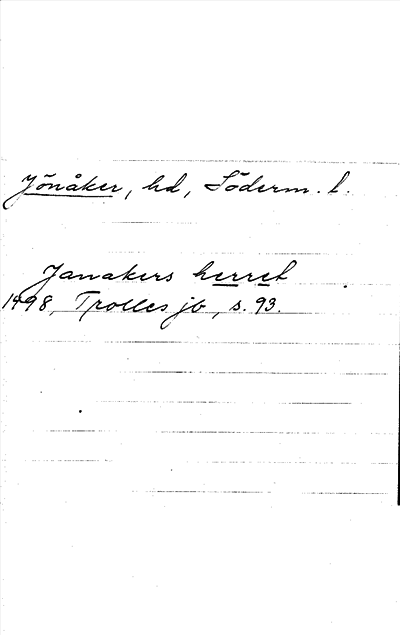 Jönåker, hd, Söderm. l.
Janakers herret
1498, Trolles jb, s. 93.